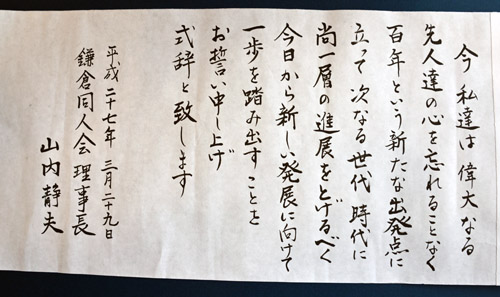 今 私達は 偉大なる
先人達の心を忘れることなく
百年という新たな出発点に
立って 次なる世代 時代に
尚一層の進展をとげるべく
今日から新しい発展に向けて
一歩を踏み出す ことを
お誓い申し上げ
式辞と致します
平成二十七年 三月二十九日
鎌倉同人会 理事長
山内静夫